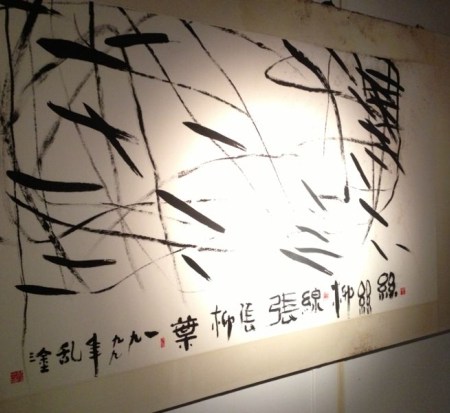 絲絲柳線張张柳葉 一九九九年乱塗